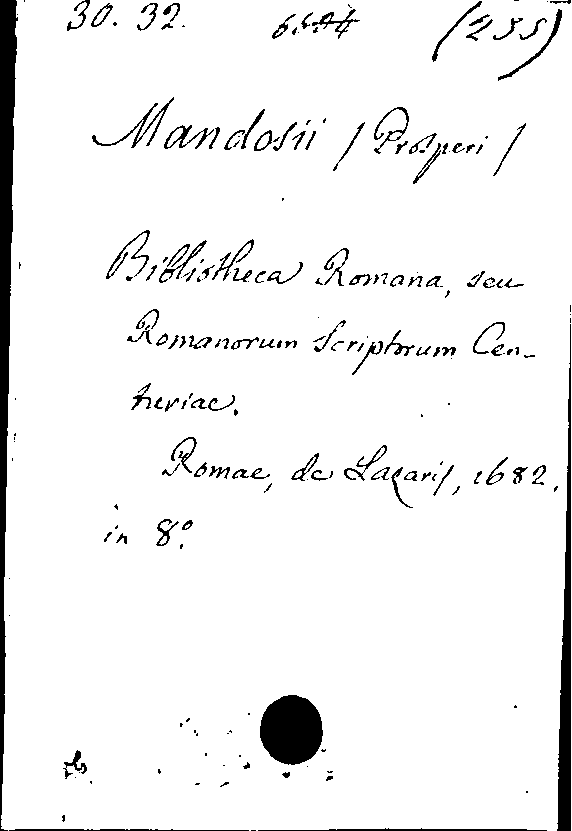 30. 32. (255)
Mandosii / Prosperi /
Bibliotheca Romana, seu
Romanorum Scriptorum Cen-
turiae.
Romae, de Lazaris, 1682.
in 8º.